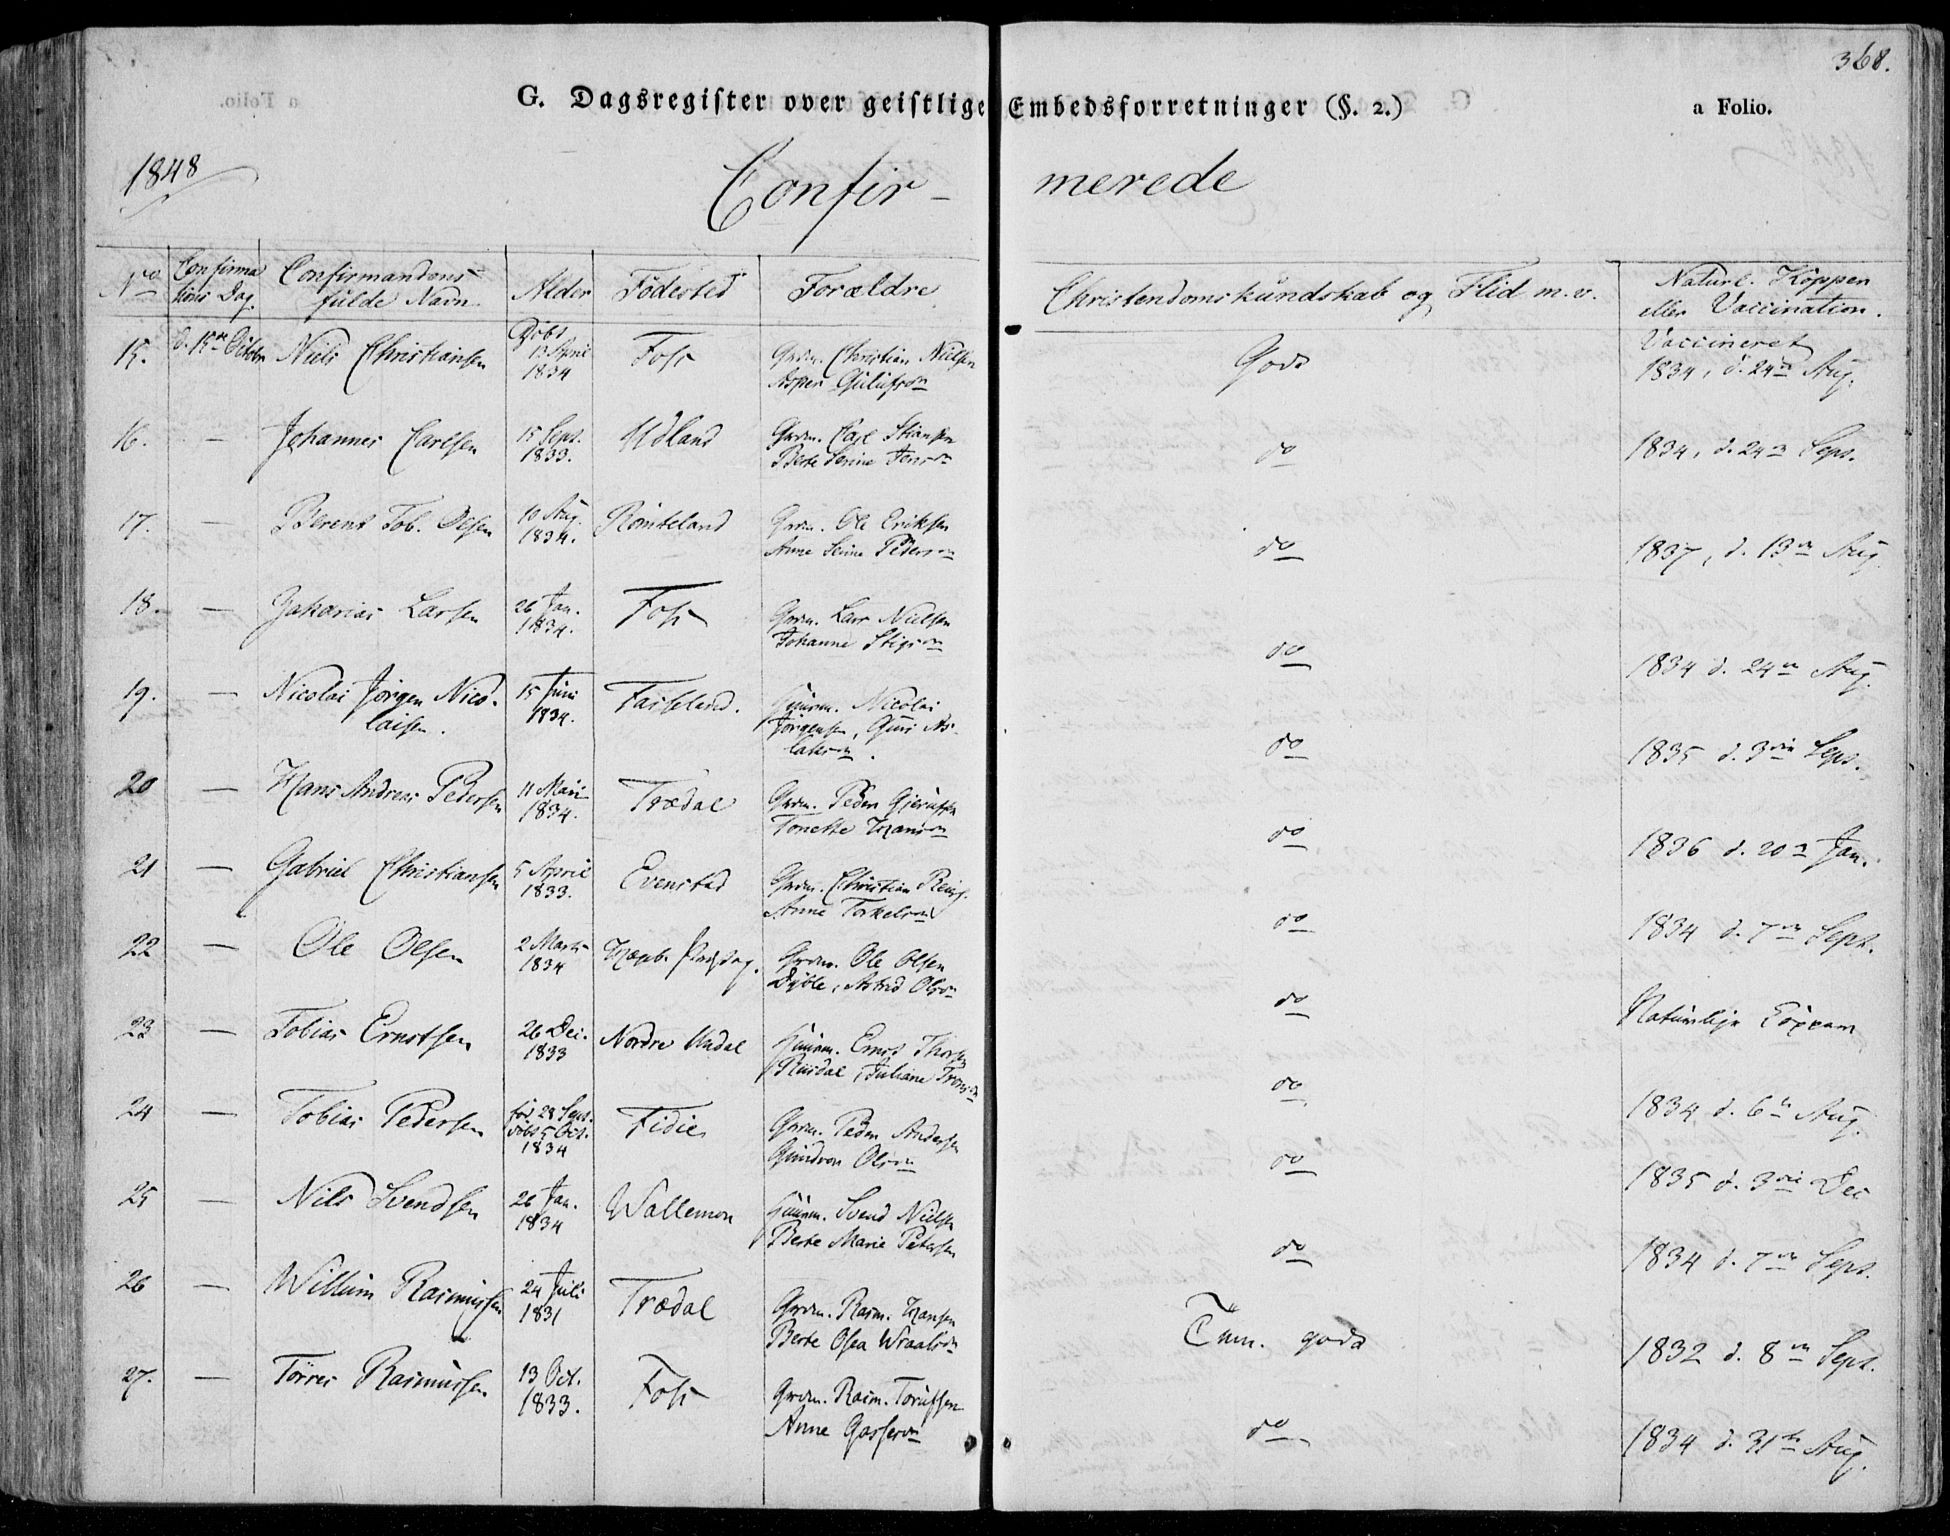 368.
G. Dagsregister over geistlige Embedsforretninger (§. 2.)
a Folio.
1848
Confir- merede
No Confirmations Dag. Confirmandens fulde Navn. Alder Fødested Forældre Christendomskundskab og Flid m. v. Naturl. Kopper eller Vaccination.
15. d. 15de Octobr Niels Christiansen Døbt 13 April 1834 Foss Grdm. Christian Nielsen God Vaccineret 1834, d. 24de Aug.
16. — Johannes Carlsen 15 Sept. 1833. Udland Grdm. Carl
Berte Serine do 1834, d. 24de Sept.
17. — Berent Tob. Olsen 10 Aug. 1834. Grdm. Ole Eriksen
Anne Serine Pedersdn do 1837, d. 13de Aug.
18. — Zakarias Larsen 26 Jan. 1834. Foss Grdm. Lars Nielsen
Johanne do 1834 d. 24de Aug.
19. — Nicolai Jørgen Nicolaisen. 15 Juni 1834. Faisseland. Huusm. Nicolai
Jørgensen, Guri Aslaksdn. do 1835 d. 3die Sept.
20 — Hans Andreas Pedersen 11 Mai 1834. Trædal Grdm. Peder
Tonette Hansdn do 1836 d. 20de Jan.
21 — Gabriel Christiansen 5 April 1833. Evenstad Grdm. Christian
Anne Torkelsdn do 1834 d. 7de Sept.
22 — Ole Olsen 2 Marts 1834 Grdm. Ole Olsen
Dyble, Astrid Olsdn do Naturlige Kopper
23 — Tobias Ernstsen 26 Dec. 1833 Nordre Undal Huusm. Ernst Thorsen
Risdal, Juliane do 1834 d. 6te Aug.
24 — Tobias Pedersen fød 28 Sept. døbt 5 Oct. 1834 Fidie Grdm. Peder Andersen
Gundvor Olsdn do 1835 d. 3die Dec
25 — Nils Svendsen 26 Jan. 1834 Wallemon Huusm. Svend Nielsen
Berte Marie Petersen do 1834 d. 7de Sept.
26 — Willum Rasmussen 24 Juli 1831 Trædal Grdm. Rasm. Hansen
Berte Olea Wraalsdn Tem. god 1832 d. 8de Sept.
27. — Tørres Rasmussen 13 Oct. 1833. Foss Grdm. Rasm.
Anne do 1834 d. 31te Aug.